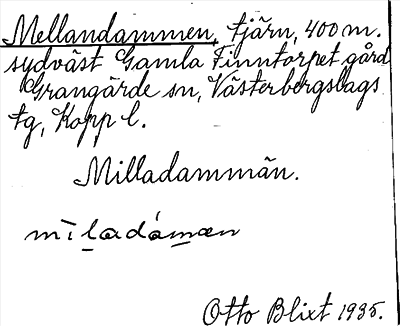 Mellandammen, tjärn, 400 m.
sydväst Gamla Finntorpet gård
Grangärde sn, Västerbergslags
tg, Kopp l.
Milladammän.
Otto Blixt 1935.